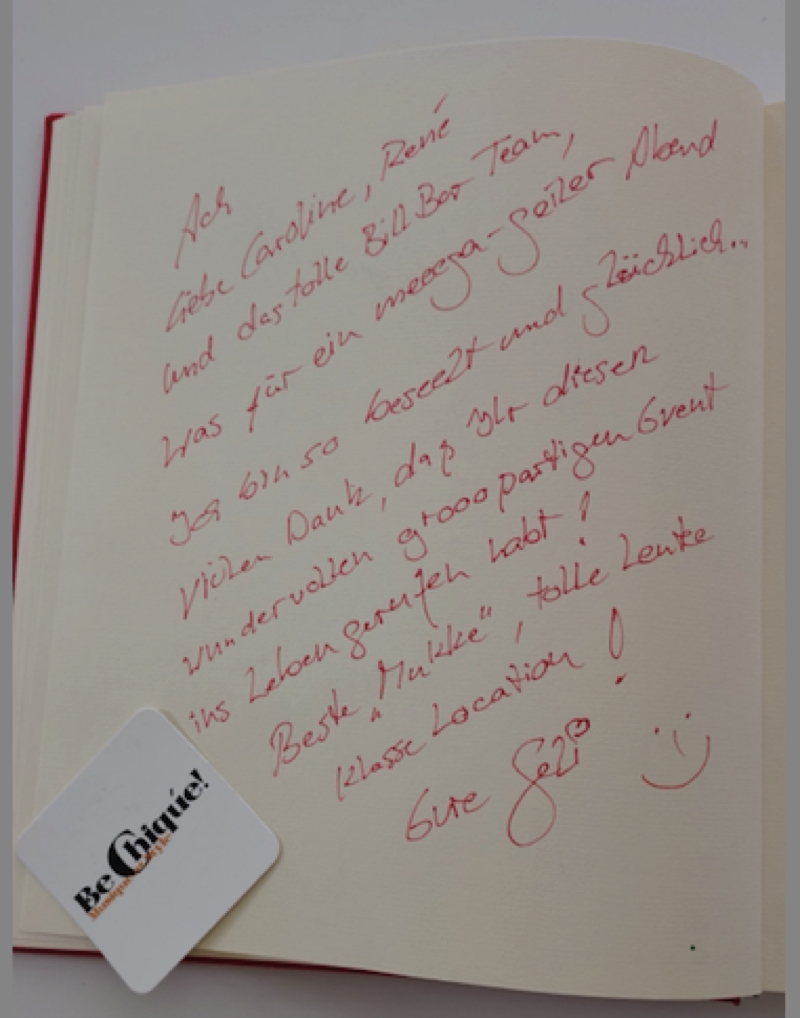 Ach
liebe Caroline, René
und das tolle Bill Bar Team,
was für ein meeega-geiler Abend
Ich bin so beseelt und glücklich..
Vielen Dank, daß Ihr diesen
wundervollen groooßartigen Event
ins Leben gerufen habt!
Beste „Mukke“, tolle Leute
klasse Location!
Eure Geli
Be Chique!